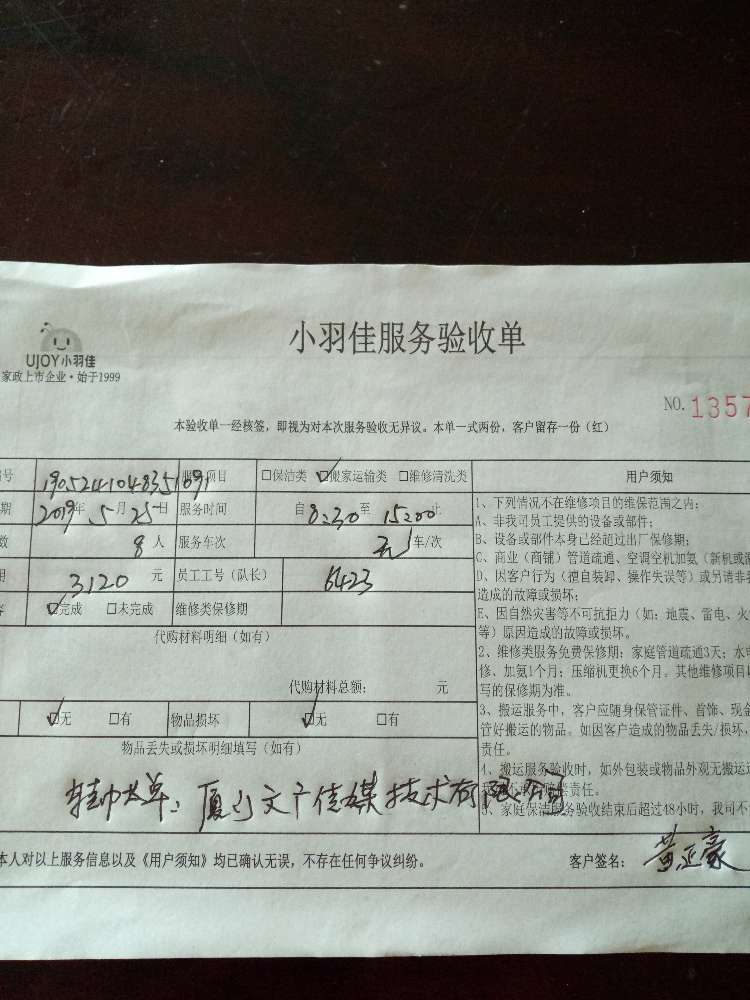 小羽佳服务验收单
UJOY小羽佳
家政上市企业·始于1999
NO. 1357
本验收单一经核签，即视为对本次服务验收无异议。本单一式两份，客户留存一份（红）
号 1905241048351091 服务项目 □保洁类 ☑搬家运输类 □维修清洗类 用户须知
期 2019年5月25日 服务时间 自 8:30 至 15:00 止
数 8 人 服务车次 车/次
3120 元 员工工号（队长） 6423
☑完成 □未完成 维修类保修期
代购材料明细（如有）
代购材料总额： 元
☑无 □有 物品损坏 ☑无 □有
物品丢失或损坏明细填写（如有）
厦门文广传媒技术有限公司
1、下列情况不在维修项目的维保范围之内：
A、非我司员工提供的设备或部件；
B、设备或部件本身已经超过出厂保修期；
C、商业（商铺）管道疏通、空调空机加氨（新机或
D、因客户行为（擅自装卸、操作失误等）或另请非
造成的故障或损坏；
E、因自然灾害等不可抗拒力（如：地震、雷电、火
等）原因造成的故障或损坏。
2、维修类服务免费保修期：家庭管道疏通3天；水电
修、加氨1个月；压缩机更换6个月。其他维修项目
写的保修期为准。
3、搬运服务中，客户应随身保管证件、首饰、现金
管好搬运的物品。如因客户造成的物品丢失/损坏，
责任。
4、搬运服务验收时，如外包装或物品外观无搬运
赔偿责任。
5、家庭保洁服务验收结束后超过48小时，我司不
本人对以上服务信息以及《用户须知》均已确认无误，不存在任何争议纠纷。 客户签名： 黄正豪